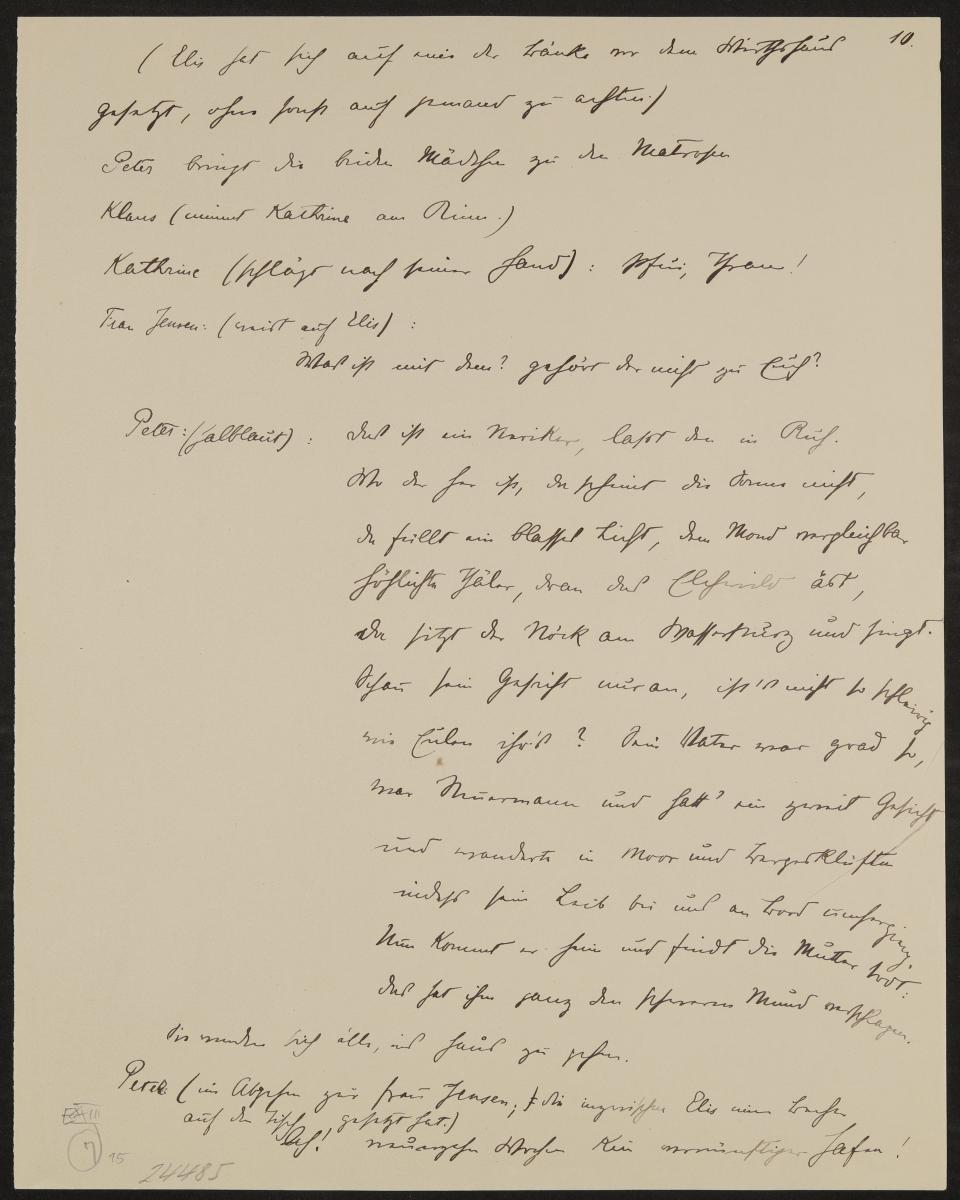 10.
( Elis hat sich auf eine der Bänke vor dem Wirthshaus
gesetzt, ohne sonst auf jemand zu achten.)
Peter bringt die beiden Mädchen zu den Matrosen
Klaus (nimmt Kathrine am Kinn.)
Kathrine (schlägt nach seiner Hand) : Pfui, Thran!
Frau Jensen: (weist auf Elis) :
Was ist mit dem? gehört der nicht zu Euch?
Peter: (halblaut) : das ist ein Neriker, lasst den in Ruh.
Wo der her ist, da scheint die Sonne nicht,
da füllt ein blasses Licht, dem Mond vergleichbar
höhlichte Thäler, dran das Elchwild äst,
da sitzt der Nöck am Wassersturz und singt.
Schau sein Gesicht nur an, ist's nicht so schläfrig
wie Eulen ihr's? Sein Vater war grad so,
war Steuermann und hatt' ein zweit Gesicht
und wanderte in Moor und Bergesklüften
indess sein Leib bei uns an Bord umherging.
Nun kommt er heim und findt die Mutter todt:
das hat ihm ganz den schweren Mund verschlagen.
Sie wenden sich alle, ins Haus zu gehen.
Peter (im Abgehen zur Frau Jensen, die inzwischen Elis einen Becher
auf den Tisch gesetzt hat.)
Ach! neunzehn Wochen kein vernünftiger Hafen!
III
7
15
24485